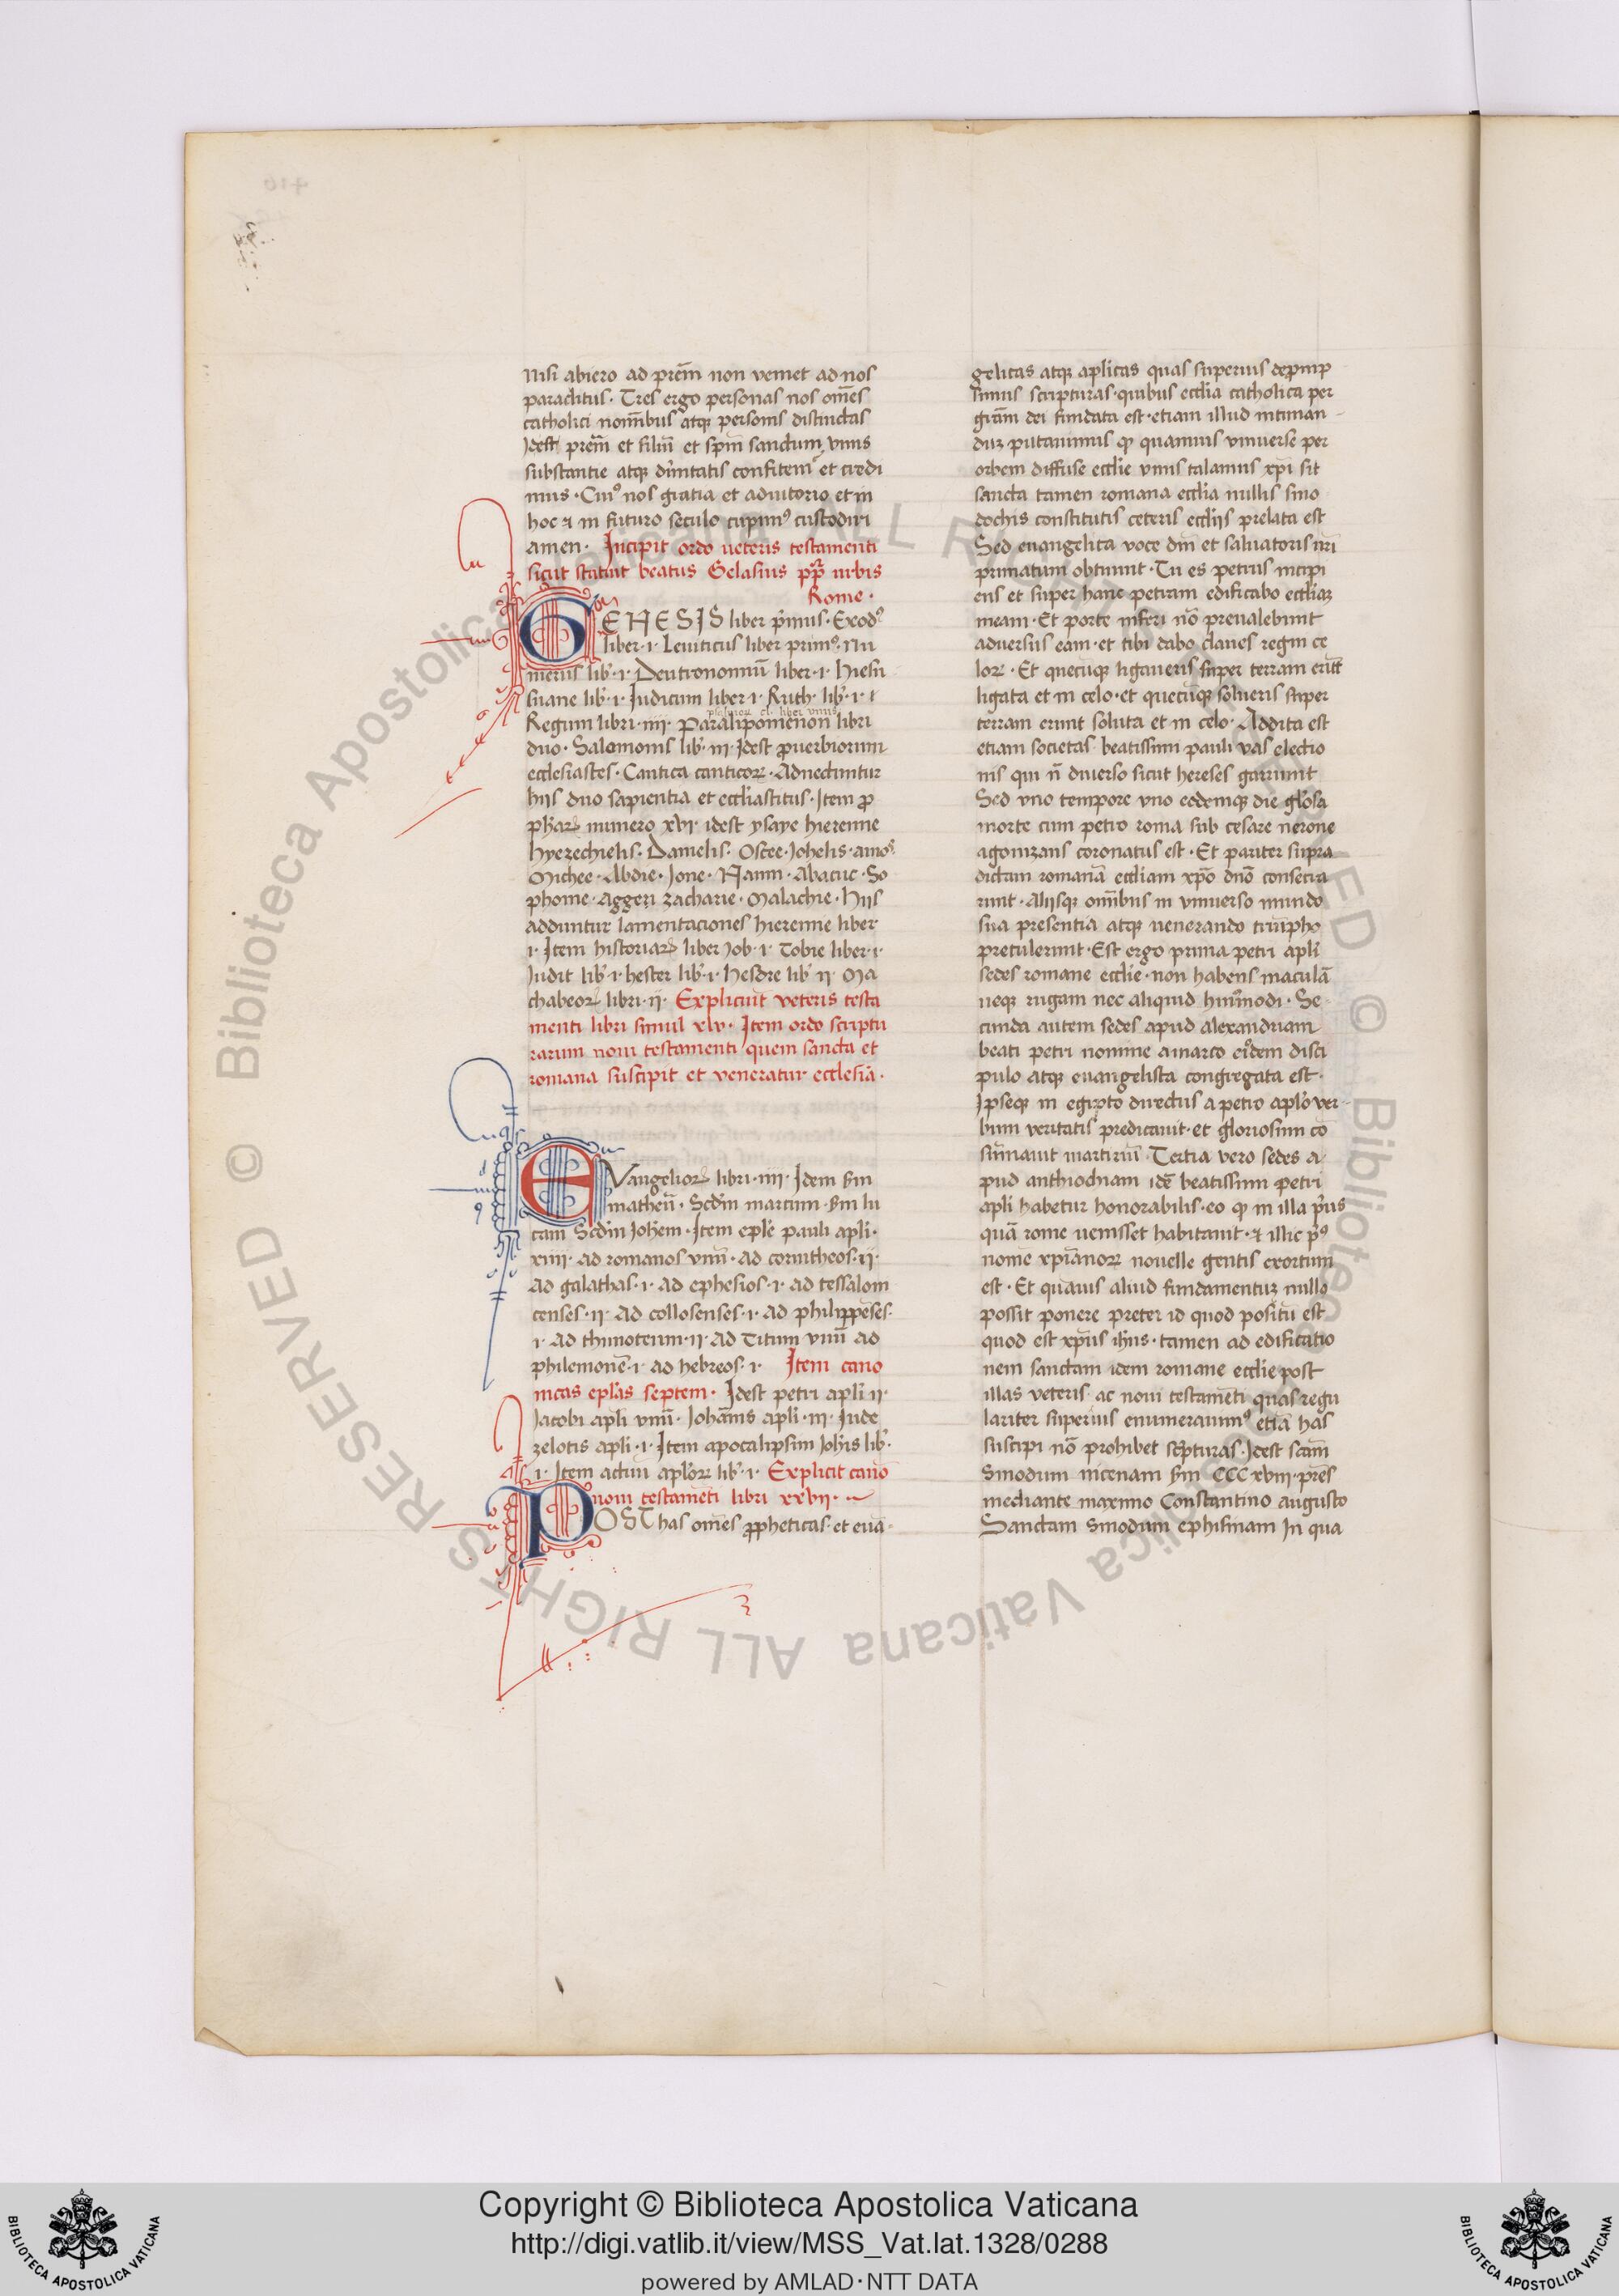 nisi abiero ad prēm non veniet ad nos
paraclitus · Tres ergo personas nos om̄es
catholici nomībus atqꝫ personis distinctas
Idest prēm et filiū et sp̄m sanctum vnius
substantie atqꝫ diuitatis confitemᷣ et credi
mus · Cuiꝰ nos gratia et adiutorio et in
hoc ⁊ in futuro seculo cupimꝰ custodiri
amen · Incipit ordo ueteris testamenti
sicut statuit beatus Gelasius pp̄ urbis
Rome ·
GENESIS liber p̄imus · Exodꝰ
liber · i · Leuiticus liber primꝰ · Nu
merus lib' · i · Deutronomiū liber · i · Hiesu
Nаue lib' · i · Iudicum liber · i · Ruth · lib' · i · i
psalmorū cl · liber vnus
Regum libri · iiii · Paralipomenon libri
duo · Salomonis lib' · iii · Idest ꝓuerbiorum
ecclesiastes · Cantica canticoꝝ · Adnectuntur
hijs duo sapientia et eccl̄iasticus · Item ꝓ
ph̄aꝝ numero xvi · idest ysaye hieremie
hyezechielis · Danielis · Oseee · Johelis · amoˢ
Michee · Abdie · Jone · Naum · Abacuc · So
phonie · aggeri zacharie · Malachie · Hijs
adduntur lamentaciones hieremie liber
· i · Item historiaꝝ liber Job · i · Tobie liber · i ·
Judit lib' · i · hester lib' · i · hesdre lib' ii · Ma
chabeoꝝ libri · ii · Explicuit veteris testa
menti libri simul xlv · Item ordo scriptu
rarum noui testamenti quem sancta et
romana suscipit et veneratur ecclesia ·
EVangelioꝝ libri · iiii · Idem s̄m
matheū · Scd̄m marcum · s̄m lu
cam Scd̄m Joh̄em · Item ep̄le pauli apl̄i ·
xiiii · ad romanos vnū · ad corintheos · ii ·
ad galathas · i · ad ephesios · i · ad tessalom
censes · ii · ad collosenses · i · ad philippēses ·
· i · ad thimoteum · ii · ad Titum vnū ad
philemonē · i · ad hebreos · i · Item cano
nicas epl̄as septem · Idest petri apl̄i ii ·
Jacobi apl̄i vnū · Joh̄annis apl̄i · iii · Jude
zelotis apl̄i · i · Item apocalipsim Joh̄is lib' ·
· i · Item actuū apl̄oꝝ lib' · i · Explicit canō
noui testamēti libri xxvii ·
POST has om̄es ꝓpheticas · et euā
gelicas atqꝫ aplicas quas superius deprmp
simus scripturas · quibus eccl̄ia catholica per
grām dei fundata est · etiam illud intiman
duꝫ putauimus ꝙ quamuis vniuerse per
orbem diffuse eccl̄ie vnus talamus xp̄i sit
sancta tamen romana eccl̄ia nullis sino
dochis constitutis ceteris eccl̄ijs prelata est
Sed euangelica voce dn̄i et saluatoris nr̄i
primatum obtinuit · Tu es petrus incipi
ens et super hanc petram edificabo eccl̄iaꝫ
meam · Et porte inferi nō preualebunt
aduersus eam · et tibi dabo claues regni ce
loꝝ · Et quecūqꝫ ligaueris super terram erūt
ligata et in celo · et quecūqꝫ solueris super
terram erunt soluta et in celo · Addita est
etiam societas beatissimi pauli vas electio
nis qui n̄ diuerso sicut hereses garriunt
Sed vno tempore vno eodemqꝫ die gl̄osa
morte cum petro roma sub cesare nerone
agonizans coronatus est · Et pariter supra
dictam romanā eccl̄iam xp̄o dn̄o consecra
runt · Alijsqꝫ omībus in vniuerso mundo
sua presentia atqꝫ uenerando triūpho
pretulerunt · Est ergo prima petri apl̄i
sedes romane eccl̄ie · non habens maculā
neqꝫ rugam nec aliquid hui'modi · Se
cunda autem sedes apud alexandriam
beati petri nomine a marco ei'dem disci
pulo atqꝫ euangelista congregata est ·
Ipseqꝫ in egipto directus a petro apl̄o ver
bum veritatis predicauit · et gloriosum cō
sūmauit martiriū · Tertia vero sedes a
pud anthiochiam idē beatissimi petri
apl̄i habetur honorabilis · eo ꝙ in illa p̄ius
quā rome uenisset habitauit · ⁊ illic p̄ꝰ
nomē xp̄ianoꝝ nouelle gentis exortum
est · Et quāuis aliud fundamentuꝫ nullo
possit ponere preter id quod positū est
quod est xp̄us ih̄us · tamen ad edificatio
nem sanctam idem romane eccl̄ie post
illas veteris ac noui testamēti quas regu
lariter superius enumerauimꝰ etiā has
suscipi nō prohibet sc̄pturas · Idest scām
Sinodum nicenam s̄m CCC xviii · prēs
mediante maximo Constantino augusto
Sanctam sinodum ephisinam In qua
Copyright © Biblioteca Apostolica Vaticana
http://digi.vatlib.it/view/MSS_Vat.lat.1328/0288
powered by AMLAD·NTT DATA
BIBLIOTECA APOSTOLICA VATICANA
BIBLIOTECA APOSTOLICA VATICANA
© Biblioteca Apostolica Vaticana ALL RIGHTS RESERVED © Biblioteca Apostolica Vaticana ALL RIGHTS RESERVED